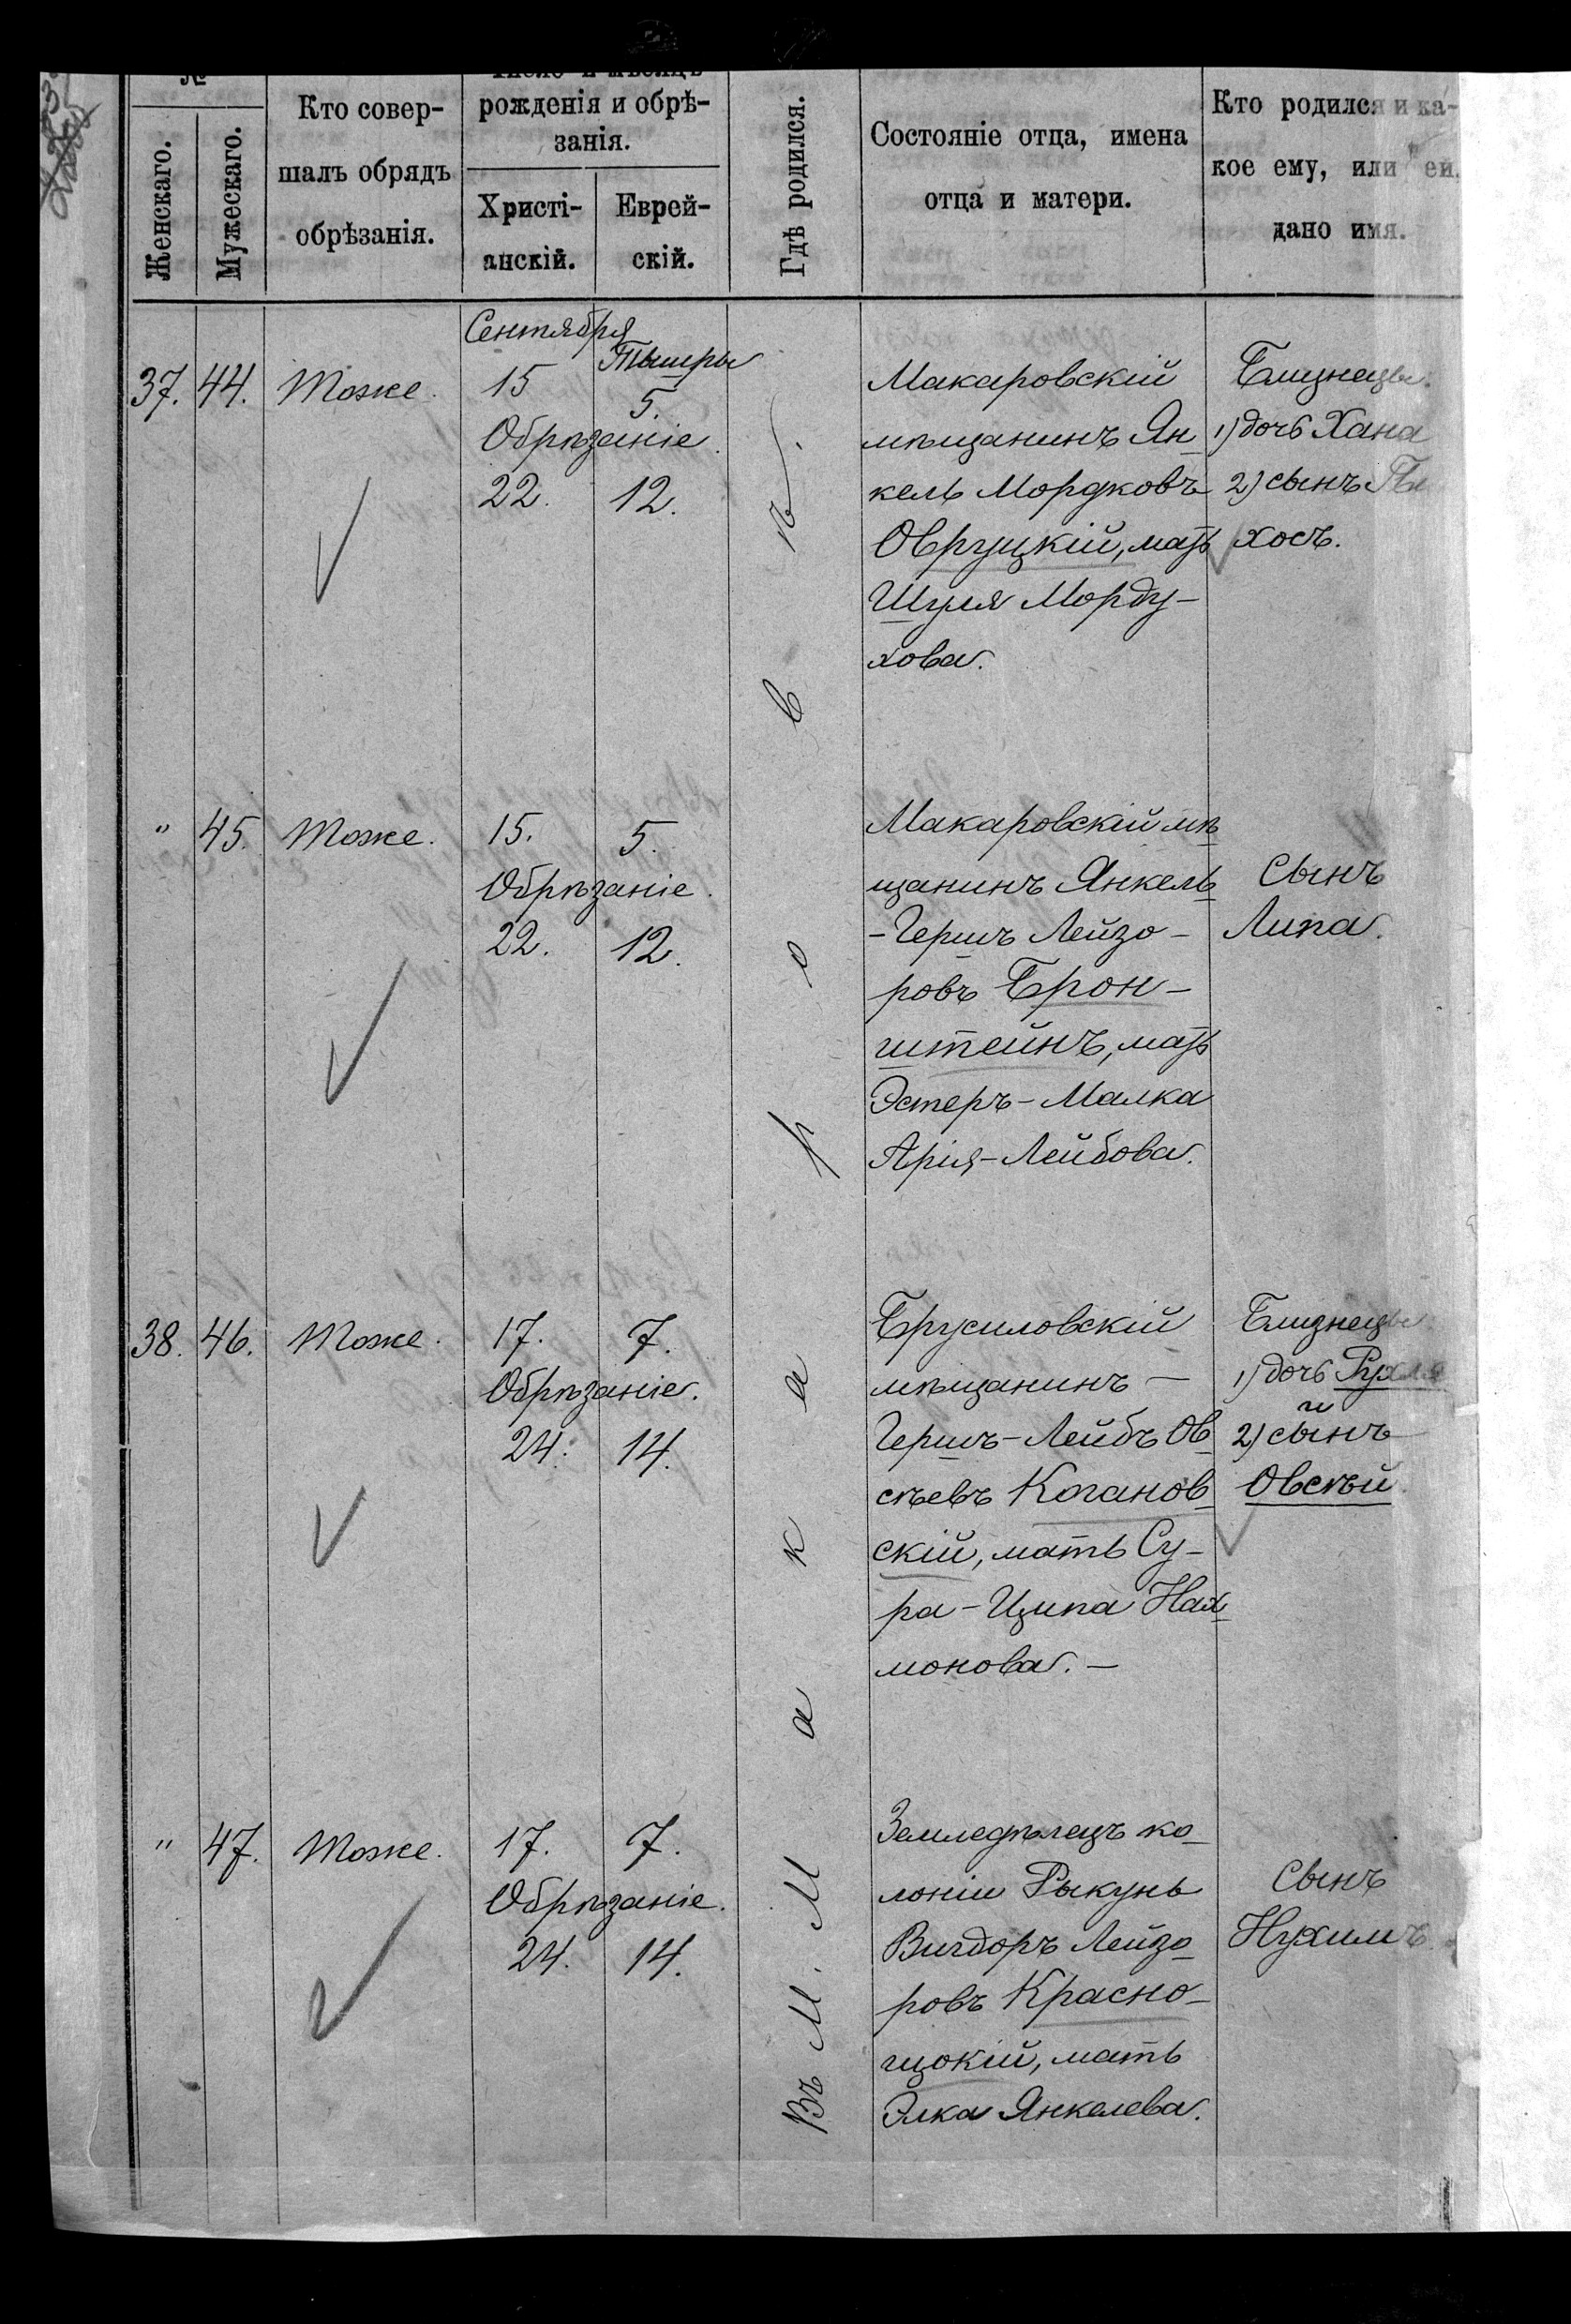 №
Женскаго.
Мужескаго.
Кто совер-
шалъ обрядъ
обрѣзанія.
Число и мѣсяцъ
рожденія и обрѣ-
занія.
Христі-
анскій.
Еврей-
скій.
Гдѣ родился.
Состояніе отца, имена
отца и матери.
Кто родился и ка-
кое ему, или ей
дано имя.
Въ м. Макаровѣ.
Сентября
Тышры
37. 44. Тоже. 15 5.
Обрѣзаніе.
22. 12.
Макаровскій
мѣщанинъ Ян-
кель Мордковъ
Овруцкій, мать
Шуля Морду-
хова.
Близнецы.
1) дочь Хана
2) сынъ
хосъ.
" 45. Тоже. 15. 5.
Обрѣзаніе.
22. 12.
Макаровскій мѣ-
щанинъ Янкель
-Гершъ Лейзо-
ровъ Брон-
штейнъ, мать
Эстеръ-Малка
Арія-Лейбова.
Сынъ
Липа.
38. 46. Тоже. 17. 7.
Обрѣзаніе.
24. 14.
Брусиловскій
мѣщанинъ —
Гершъ-Лейбъ Ов-
сѣевъ Каганов-
скій, мать Су-
ра-Ципа Нах-
монова. —
Близнецы
1) дочь Рухля
2) сынъ
Овсѣй
" 47. Тоже. 17. 7.
Обрѣзаніе.
24. 14.
Земледѣлецъ ко-
лоніи Рыкунь
Вигдоръ Лейзо-
ровъ Красно-
щокій, мать
Элка Янкелева.
Сынъ
Нухимъ.